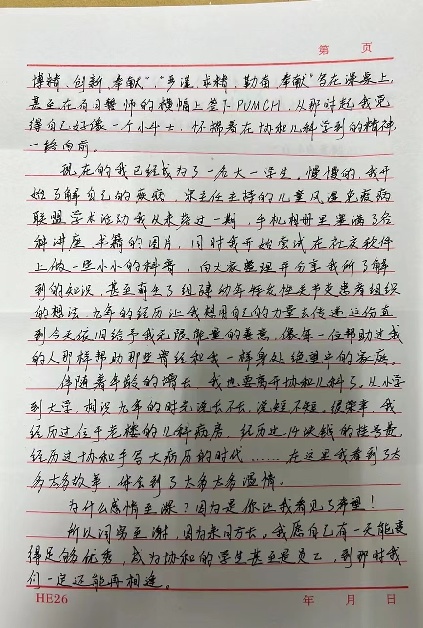 第 页
博精、创新、奉献”,“严谨、求精、勤奋、奉献”写在课桌上,
甚至在百日誓师的横幅上签下PUMCH,从那时起我觉
得自己好像一个小斗士,怀揣着在协和儿科学到的精神
一路向前。
现在的我已经成为了一名大一学生,慢慢的,我开
始了解自己的疾病,宋主任主持的儿童风湿免疫病
联盟学术活动我从未落过一期,手机相册里塞满了各
种讲座、书籍的图片,同时我开始尝试在社交软件
上做一些小小的科普,向大家整理并分享我所了解
到的知识,甚至萌生了组建幼年特发性关节炎患者组织
的想法,九年的经历让我想用自己的力量去传递这份直
到今天依旧给予我无限能量的善意,像每一位帮助过我
的人那样帮助那些曾经和我一样身处绝望中的家庭。
伴随着年龄的增长,我也要离开协和儿科了。从小学
到大学,相识九年的时光说长不长,说短不短,很荣幸,我
经历过位于老楼的儿科病房,经历过14块钱的挂号费
经历过协和手写大病历的时代……在这里我看到了太
多太多故事,体会到了太多太多温情。
为什么感情至深?因为是你让我看见了希望!
所以词穷至谢,因为来日方长。我愿自己有一天能变
得足够优秀,成为协和的学生甚至是员工,到那时我
们一定还能再相逢。
HE26 年 月 日